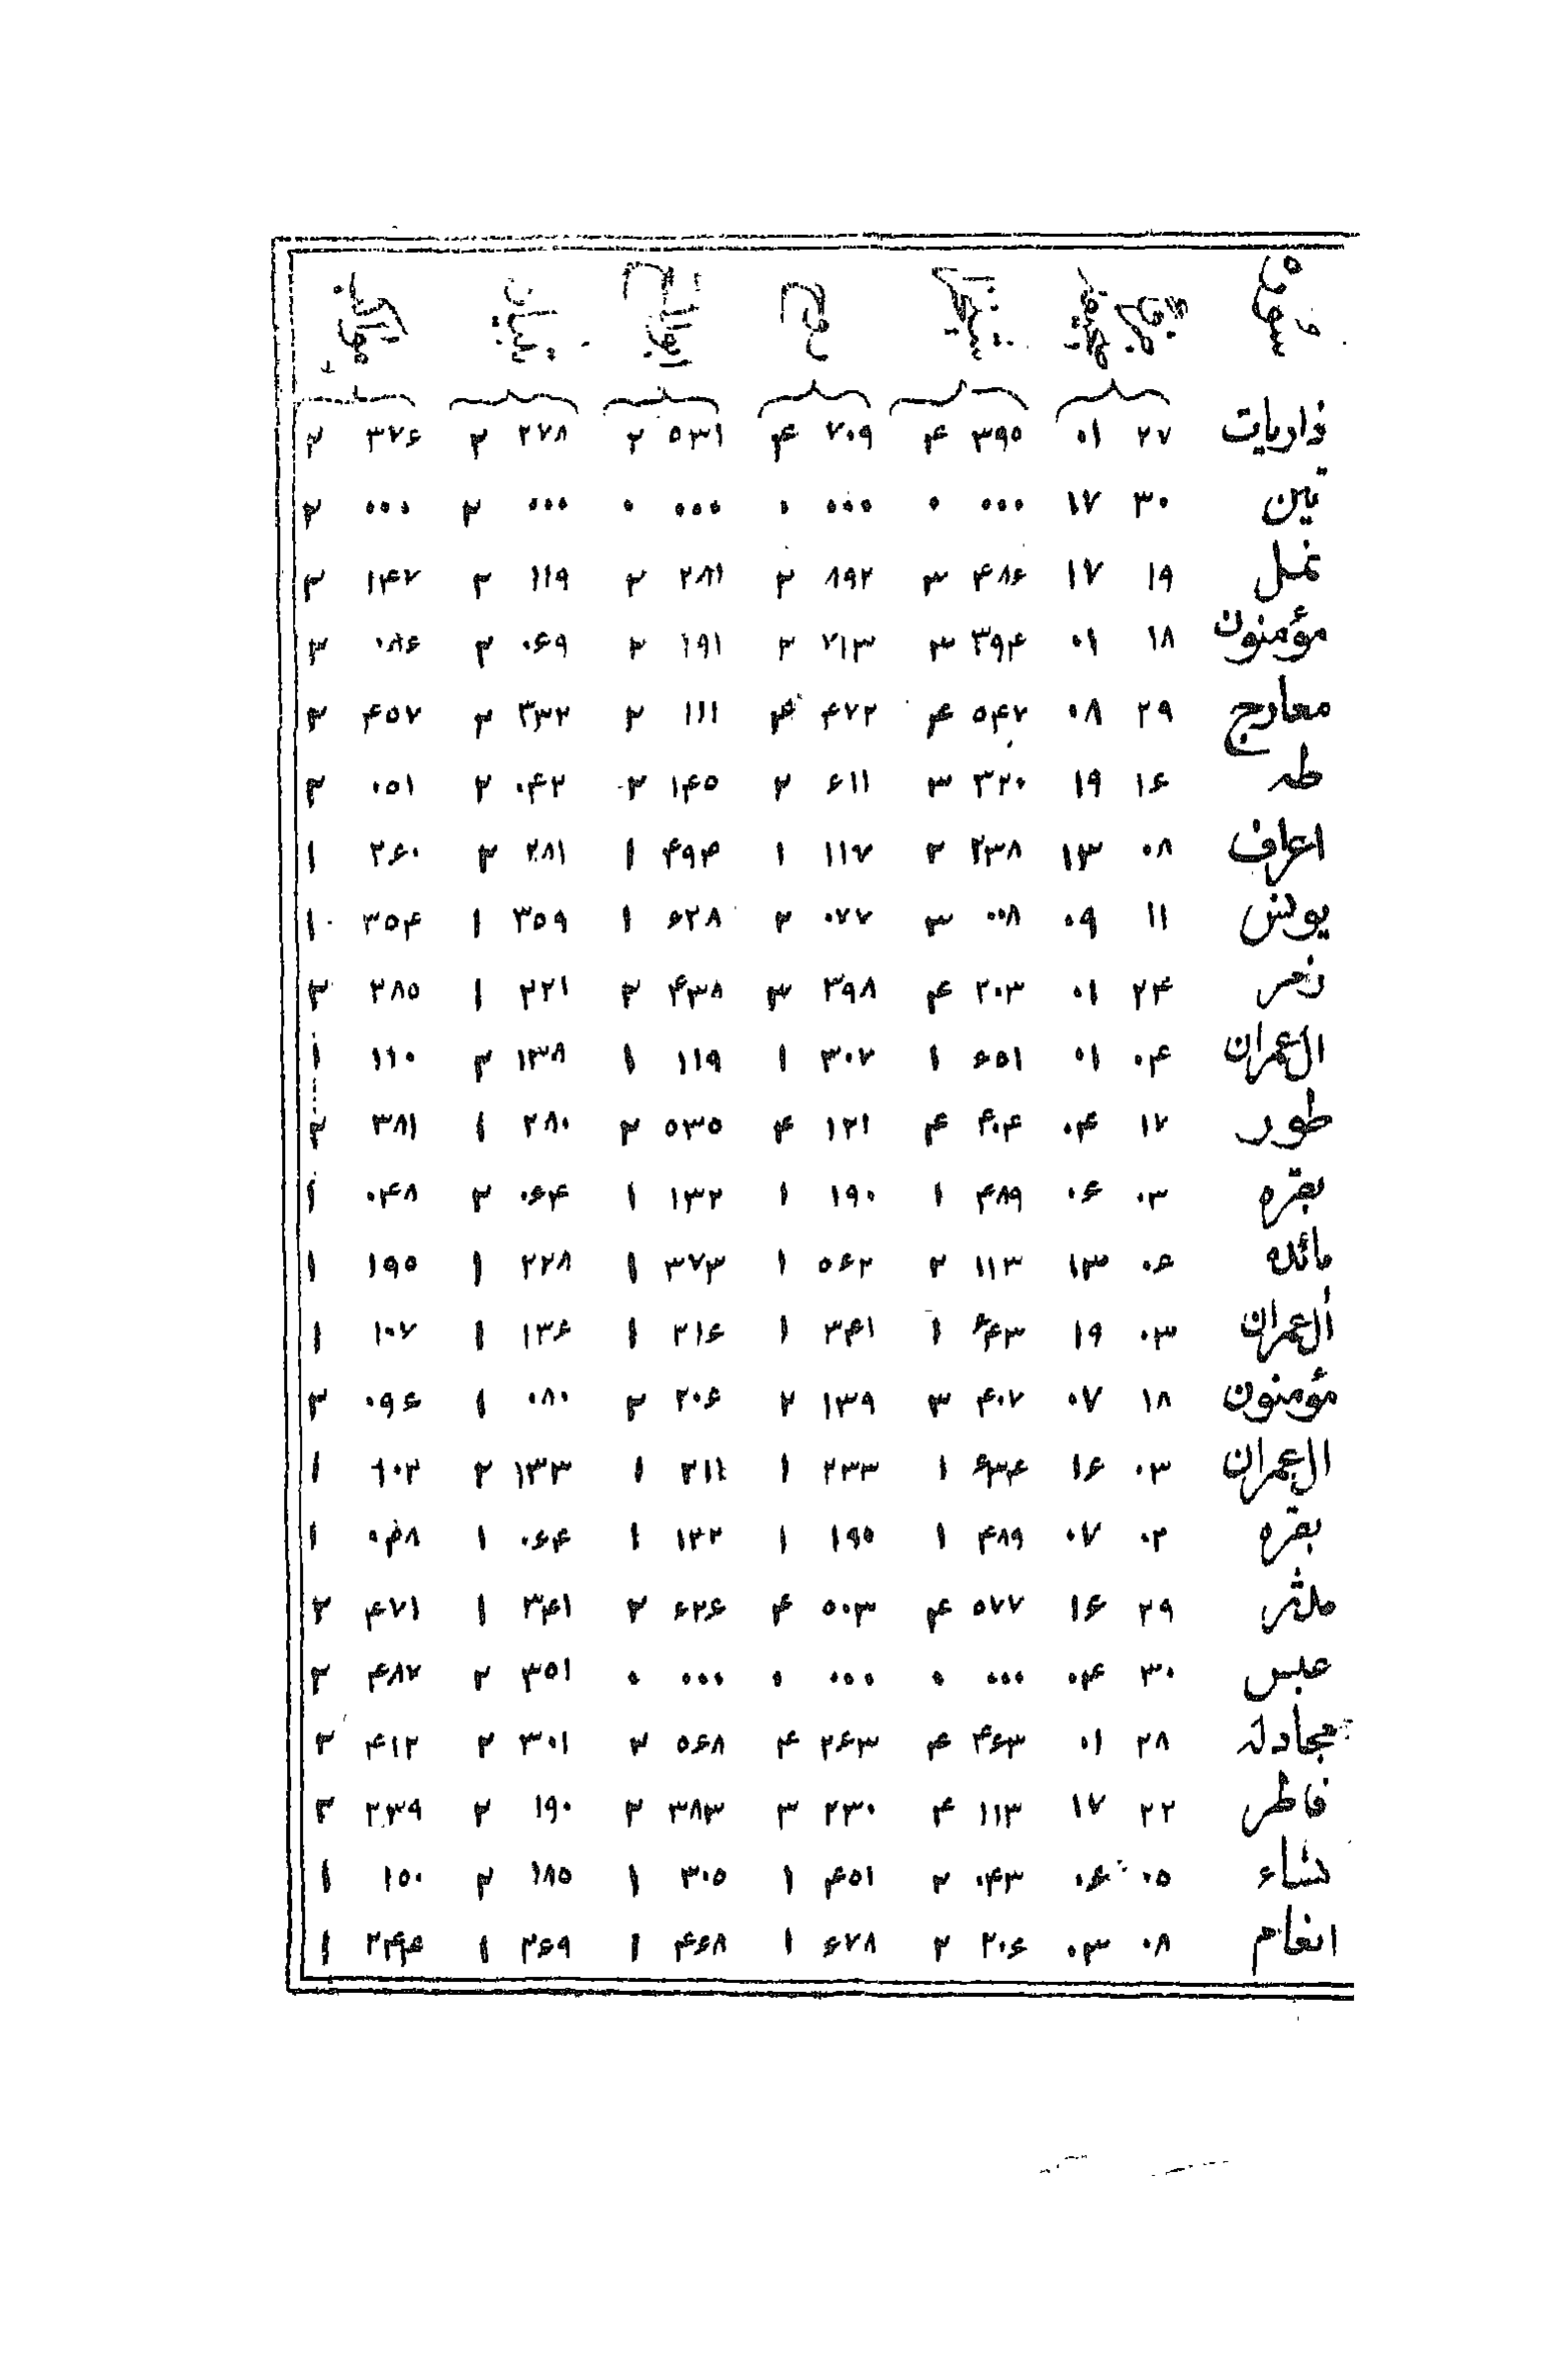 ذاریات ۲۷ ۰۱ ۳۹۵ ۴ ۷۰۹ ۴ ۵۳۱ ۲ ۲۷۸ ۲ ۳۷۶ ۲
تین ۳۰ ۱۷ ۰۰۰ ۰ ۰۰۰ ۰ ۰۰۰ ۰ ۰۰۰ ۲ ۰۰۰ ۲
نمل ۱۹ ۱۷ ۴۸۶ ۳ ۸۹۲ ۲ ۲۸۱ ۲ ۱۱۹ ۲ ۱۴۷ ۲
مؤمنون ۱۸ ۰۱ ۳۹۴ ۳ ۷۱۳ ۲ ۱۹۱ ۲ ۰۶۹ ۲ ۰۸۶ ۲
معارج ۲۹ ۰۸ ۵۴۷ ۴ ۴۷۲ ۴ ۱۱۱ ۲ ۳۳۲ ۲ ۴۵۷ ۲
طه ۱۶ ۱۹ ۳۲۰ ۳ ۶۱۱ ۲ ۱۴۵ ۲ ۰۴۲ ۲ ۰۵۱ ۲
اعراف ۰۸ ۱۳ ۲۳۸ ۲ ۱۱۷ ۱ ۴۹۴ ۱ ۲۸۱ ۲ ۲۶۰ ۱
یونس ۱۱ ۰۹ ۰۰۸ ۳ ۰۷۷ ۲ ۶۲۸ ۱ ۳۵۹ ۱ ۳۵۴ ۱
زمر ۲۴ ۰۱ ۲۰۳ ۴ ۳۹۸ ۳ ۴۳۸ ۲ ۲۲۱ ۱ ۲۸۵ ۲
ال عمران ۰۴ ۰۱ ۶۵۱ ۱ ۳۰۷ ۱ ۱۱۹ ۱ ۱۳۸ ۲ ۱۱۰ ۱
طور ۱۷ ۰۴ ۴۰۴ ۴ ۱۲۱ ۴ ۵۳۵ ۲ ۲۸۰ ۱ ۳۸۱ ۲
بقره ۰۳ ۰۶ ۴۸۹ ۱ ۱۹۰ ۱ ۱۳۲ ۱ ۰۶۴ ۲ ۰۴۸ ۱
مائده ۰۶ ۱۳ ۱۱۳ ۲ ۵۶۲ ۱ ۳۷۳ ۱ ۲۲۸ ۱ ۱۹۵ ۱
ال عمران ۰۳ ۱۹ ۶۴۳ ۱ ۳۴۱ ۱ ۲۱۶ ۱ ۱۳۶ ۱ ۱۰۷ ۱
مؤمنون ۱۸ ۰۷ ۴۰۷ ۳ ۱۳۹ ۲ ۲۰۶ ۲ ۰۸۰ ۱ ۰۹۶ ۲
ال عمران ۰۳ ۱۶ ۶۳۴ ۱ ۲۳۳ ۱ ۲۱۱ ۱ ۱۳۳ ۲ ۱۰۲ ۱
بقره ۰۲ ۰۷ ۴۸۹ ۱ ۱۹۰ ۱ ۱۳۲ ۱ ۰۶۴ ۱ ۰۴۸ ۱
مدثر ۲۹ ۱۶ ۵۷۷ ۴ ۵۰۳ ۴ ۶۲۶ ۲ ۳۴۱ ۱ ۴۷۱ ۲
عبس ۳۰ ۰۴ ۰۰۰ ۰ ۰۰۰ ۰ ۰۰۰ ۰ ۳۵۱ ۲ ۴۸۷ ۲
مجادله ۲۸ ۰۱ ۴۶۳ ۴ ۲۶۳ ۴ ۵۶۸ ۲ ۳۰۱ ۲ ۴۱۲ ۲
فاطر ۲۲ ۱۷ ۱۱۳ ۴ ۲۳۰ ۳ ۳۸۳ ۲ ۱۹۰ ۲ ۲۳۹ ۲
نساء ۰۵ ۰۶ ۰۴۳ ۲ ۴۵۱ ۱ ۳۰۵ ۱ ۱۸۵ ۲ ۱۵۰ ۱
انعام ۰۸ ۰۳ ۲۰۶ ۲ ۶۷۸ ۱ ۴۶۸ ۱ ۲۶۹ ۱ ۲۴۶ ۱